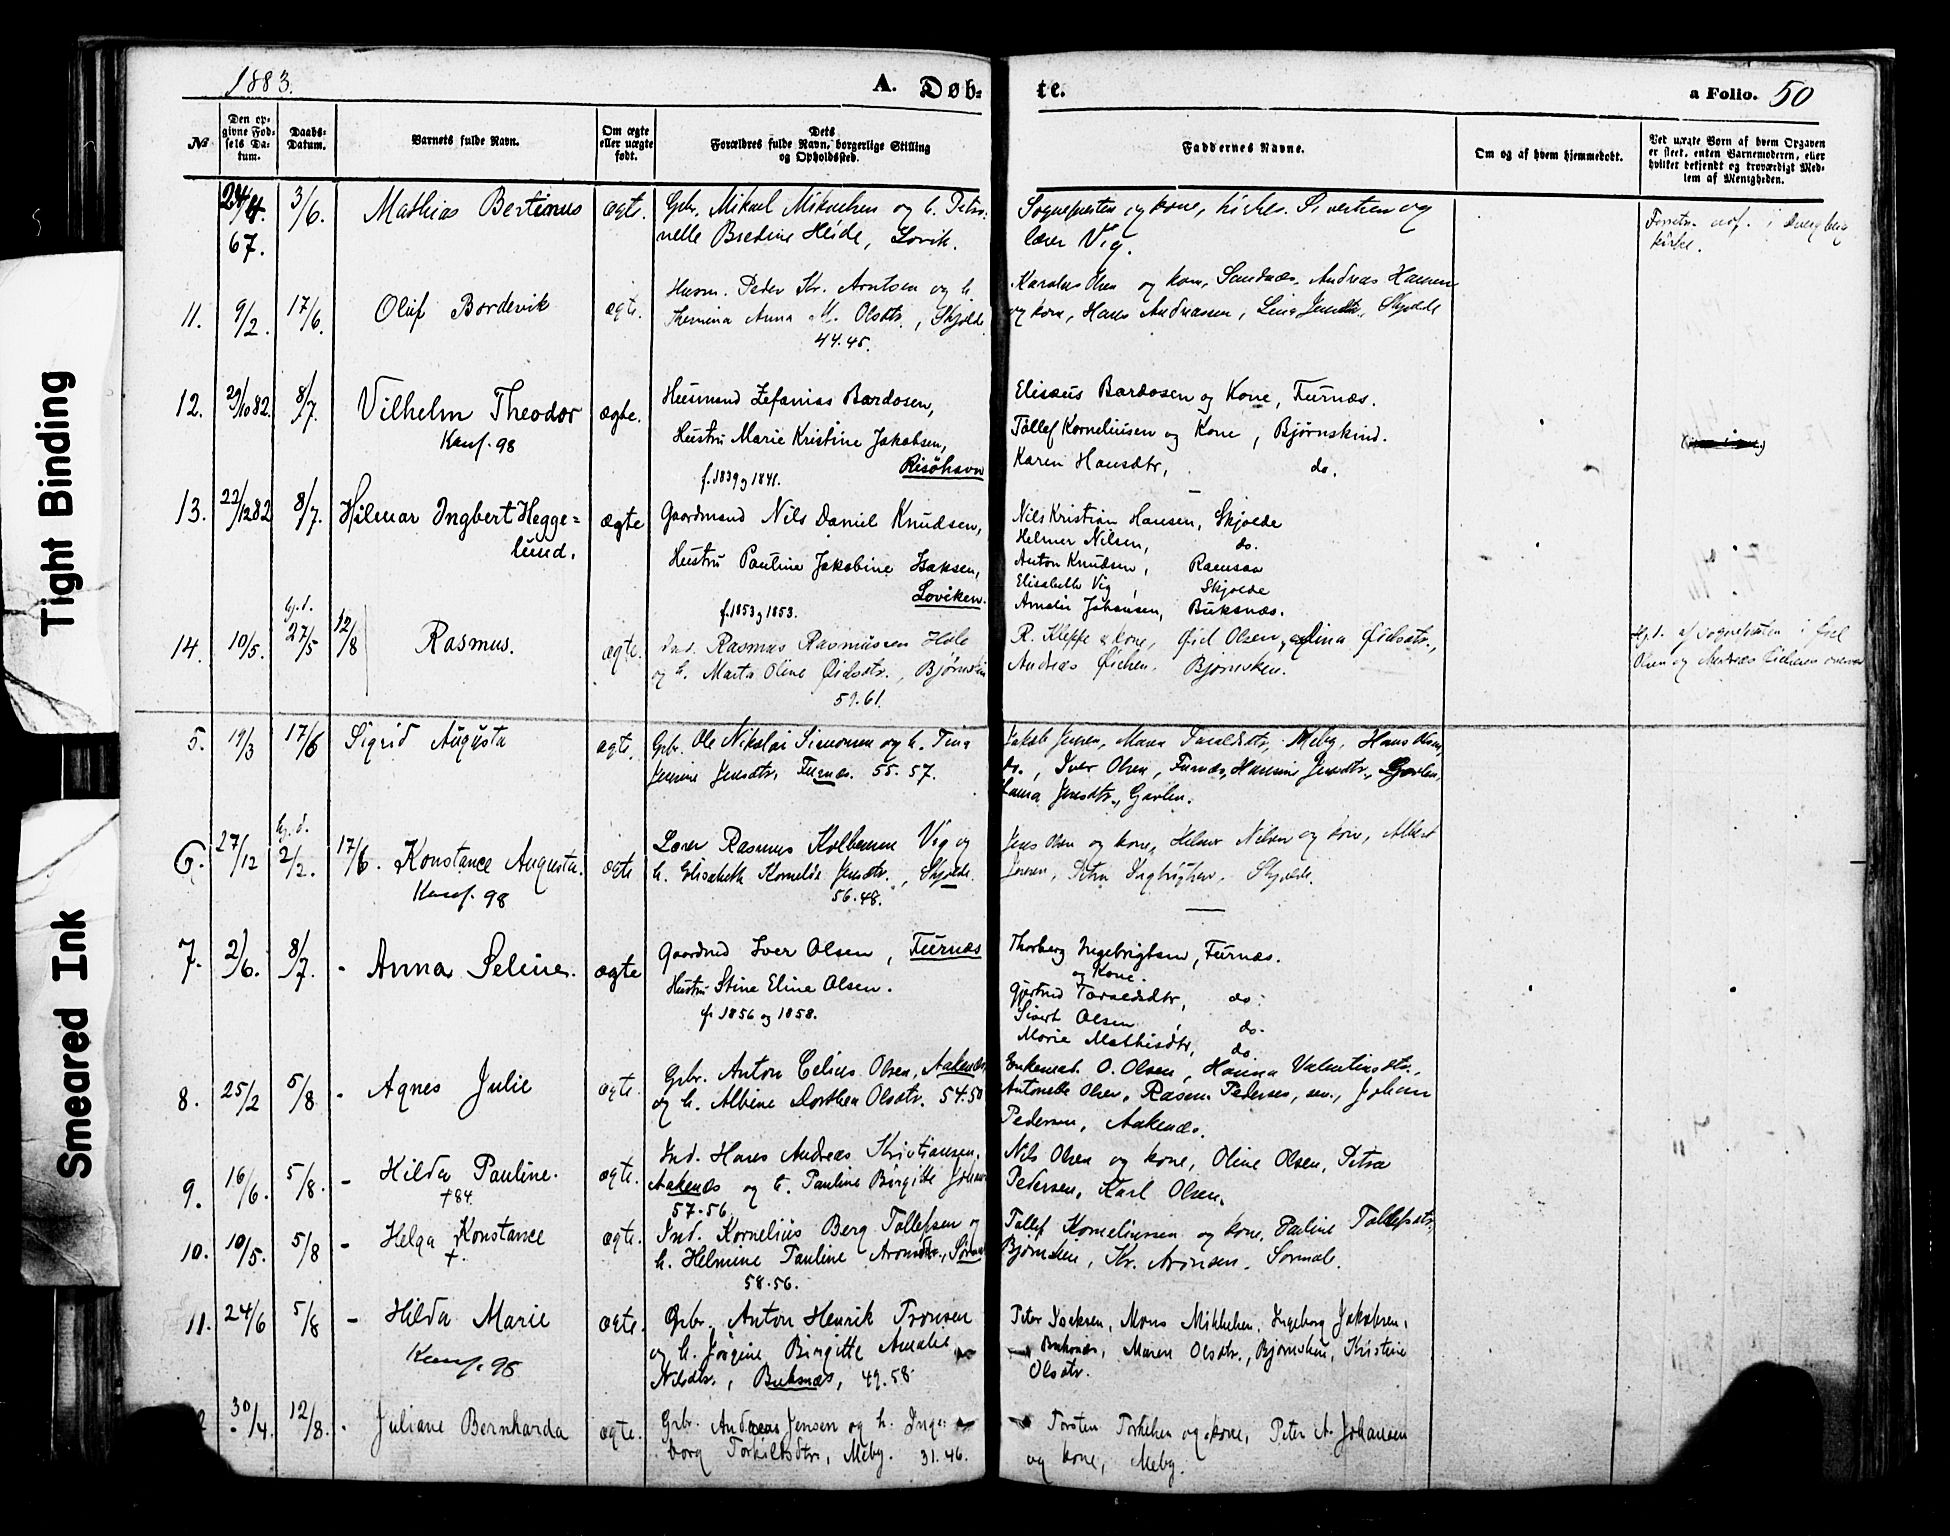 1883.
A. Døb-
te.
a Folio. 50
№
Den op-
givne Fød-
sels Da-
tum.
Daabs-
Datum.
Barnets fulde Navn.
Om ægte
eller uægte
født.
Dets
Forældres fulde Navn, borgerlige Stilling
og Opholdssted.
Faddernes Navne.
Om og af hvem hjemmedøbt.
Ved uægte Børn af hvem Opgaven
er skeet, enten Barnemoderen, eller
hvilket bekjendt og troværdigt Med-
lem af Menigheden.
24/4. 3/6. Mathias Bertinus ægte. Gbr. Mikael Mikaelsen og h. Petro-
67. nelle Bredine Heide, Lovik.
Sognepresten og kone, Sivertsen og
lærer Vig.
kirke.
11. 9/2. 17/6. Oluf Bordevik ægte. Husm. Peder Kr. Arntsen og h.
Anna M. Olsdtr., Skjolde
44.45.
Karolus Olsen og kone, Sandnæs, Andreas Hansen
og kone, Hans Andreassen, Lina Jensdtr., Skjolde
12. 29/10 82. 8/7. Vilhelm Theodor ægte. Husmand Zefanias Bardosen,
Konf. 98
Hustru Marie Kristine Jakobsen,
Risöhavn
f. 1839 og 1841.
Elisæus Bardosen og Kone, Furnæs.
Tollef Korneliusen og Kone, Bjørnskind.
Karen Hansdtr, do.
13. 22/12 82 8/7. Hilmar Ingbert Hegge=
lund. ægte Gaardmand Nils Daniel Knudsen,
Hustru Pauline Jakobine Isaksen,
Loviken.
f. 1853 og 1853.
Nils Kristian Hansen, Skjolde
Helmer Nilsen, do.
Anton Knudsen, Ramsaa
Elisabeth Vig, Skjolde
Amalie Johansen, Buksnæs.
hj. d.
14. 10/5. 27/5 12/8 Rasmus. ægte. Ind. Rasmus Rasmussen Hole
og h. Marta Oline Eidsdtr., Bjørnskin
59.61.
R. Kleppe & kone, Olsen,
Andreas Bjørnsken.
Hjd. af Sognepresten i
Olsen og Andreas
5. 19/3 17/6 Sigrid Augusta ægte. Gbr. Ole Nikolai Simonsen og h. Tina
Jensine Jensdtr. Furnæs. 55.57.
Jakob Jensen, Maren Meby, Hans Olsen
do., Iver Olsen, Furnæs, Hansine Jensdtr., Gavlen,
Jensdtr., Gavlen.
hj. d.
6. 27/12 2/2. 17/6. Konstance Augusta. ægte Lærer Rasmus Kolbensen Vig og
Konf. 98
h. Elisabeth Kornelia Jensdtr., Skjolde.
56.48.
Jens Olsen og kone, Helmer Nilsen og kone, Albert
Jensen, Petra Ingbrigtsen, Skjolde.
7. 2/6. 8/7. - Anna Seline. ægte Gaardmd Iver Olsen, Furnæs
Hustru Stine Eline Olsen.
f. 1856 og 1858.
Thorberg Ingebrigtsen, Furnæs.
og Kone.
Gjertrud Taraldsdtr, do.
Sivert Olsen, do.
Marie Mathisdtr, do.
8. 25/2 5/8 - Agnes Julie ægte. Gbr. Anton Celius Olsen, Aakenæs
og h. Albine Dorthea Olsdtr. 54.50
Enkemd. O. Olsen, Hanna Valentinsdtr.,
Antonette Olsen, Rasm. Pedersen, sen., Johan
Pedersen, Aakenæs.
9. 16/6. 5/8. - Hilda Pauline. ægte. Ind. Hans Andreas Kristiansen,
†84.
Aakenæs og h. Pauline Birgitte Johans
57-56
Nils Olsen og kone, Oline Olsen, Petra
Pedersen, Karl Olsen.
10. 10/5. 5/8 - Helga Konstance ægte. Ind. Kornelius Berg Tollefsen og
†.
h. Helmine Pauline Aronsdtr.,
58.56.
Tollef Korneliussen og kone, Pauline Tollefsdtr.
Bjørnskin, Kr. Aronsen, Sørmæl.
11. 24/6 5/8 - Hilda Marie ægte. Gbr. Anton Henrik Tronsen
Konf. 98
og h. Jörgine Birgitte Amalie
Nilsdtr., Buksnæs, 49.58
Peter Isaksen, Mons Mikkelsen, Ingeborg Jakobsen,
Buksnæs, Maren Olsdtr., Bjørnskin, Kristine
Olsdtr.
30/4. 12/8. - Juliane Bernharda ægte. Gbr. Andreas Jensen og h. Inge-
borg Torkildsdtr., Meby. 31.46.
Torsten Torkelsen og kone, Peter A. Johansen
og kone, Meby.
Tight Binding
Smeared Ink